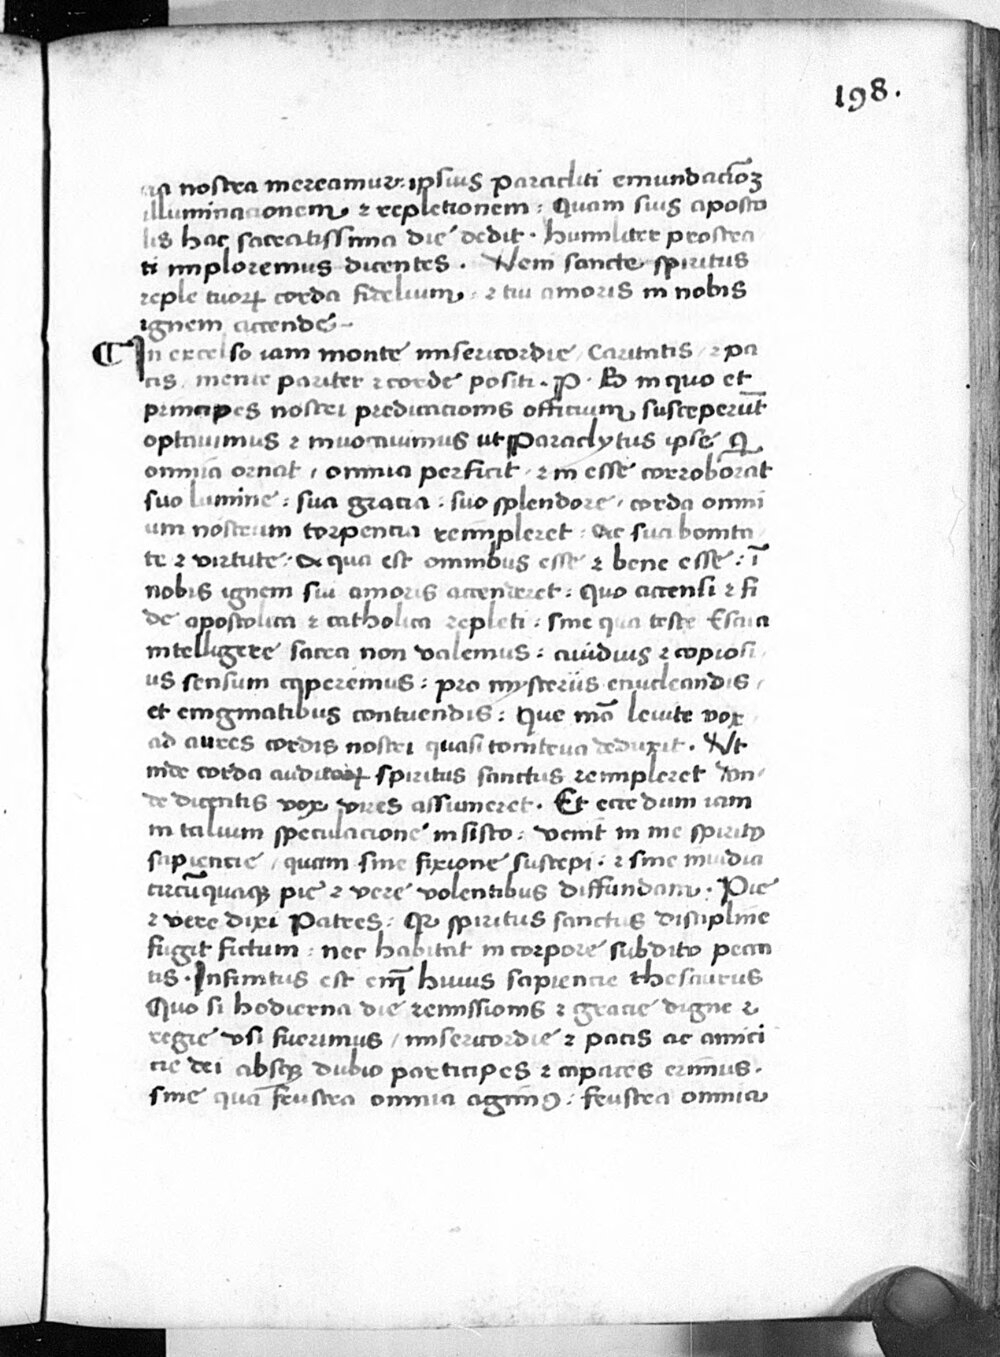 198.
cia nostra mereamur: ipsius paracliti emundacioꝫ
illuminacionem, ⁊ repletionem: Quam suis aposto
lis hac sacratissima die dedit. humiliter prostra
ti imploremus dicentes. Veni sancte spiritus
reple tuoꝝ corda fidelium, ⁊ tui amoris in nobis
ignem accende
¶ In excelso iam monte misericordie / Caritatis / ⁊ pa
cis / mente pariter ⁊ corde positi. P. Eo in quo et
principes nostri predicacionis officium, susceperūt
optauimus ⁊ inuocauimus ut Paraclytus ipse Q̄
omnia ornat / omnia perficit / ⁊ in esse corroborat
suo lumine: sua gracia: suo splendore / corda omni
um nostrum torpencia reimpleret: Ac sua bonita
te ⁊ virtute: A qua est omnibus esse ⁊ bene esse: ī
nobis ignem sui amoris accenderet: Quo accensi ⁊ fi
de apostolica ⁊ catholica repleti: sine qua teste Esaia
intelligere sacra non valemus: auidius ⁊ copiosi
us sensum caperemus: pro mysteriis enucleandis /
et enigmatibus contuendis: Que mō leuite vox
ad aures cordis nostri quasi tonitrua deduxit. Vt
inde corda auditoꝝ spiritus sanctus reimpleret Vn
de dicentis vox vires assumeret. Et ecce dum iam
in talium speculacione insisto: venit in me spirit9
sapiencie / quam sine fixione suscepi. ⁊ sine inuidia
circūquaqꝫ pie ⁊ vere volentibus diffundam. Pie
⁊ vere dixi Patres: Qr spiritus sanctus discipline
fugit fictum: nec habitat in corpore subdito pecca
tis. Infinitus est em̄ huius sapiencie thesaurus
Quo si hodierna die remissionis ⁊ gracie digne ⁊
regie vsi fuerimus / misericordie ⁊ pacis ac amici
cie dei absqꝫ dubio participes ⁊ capaces erimus.
sine qua frustra omnia agim9: frustra omnia